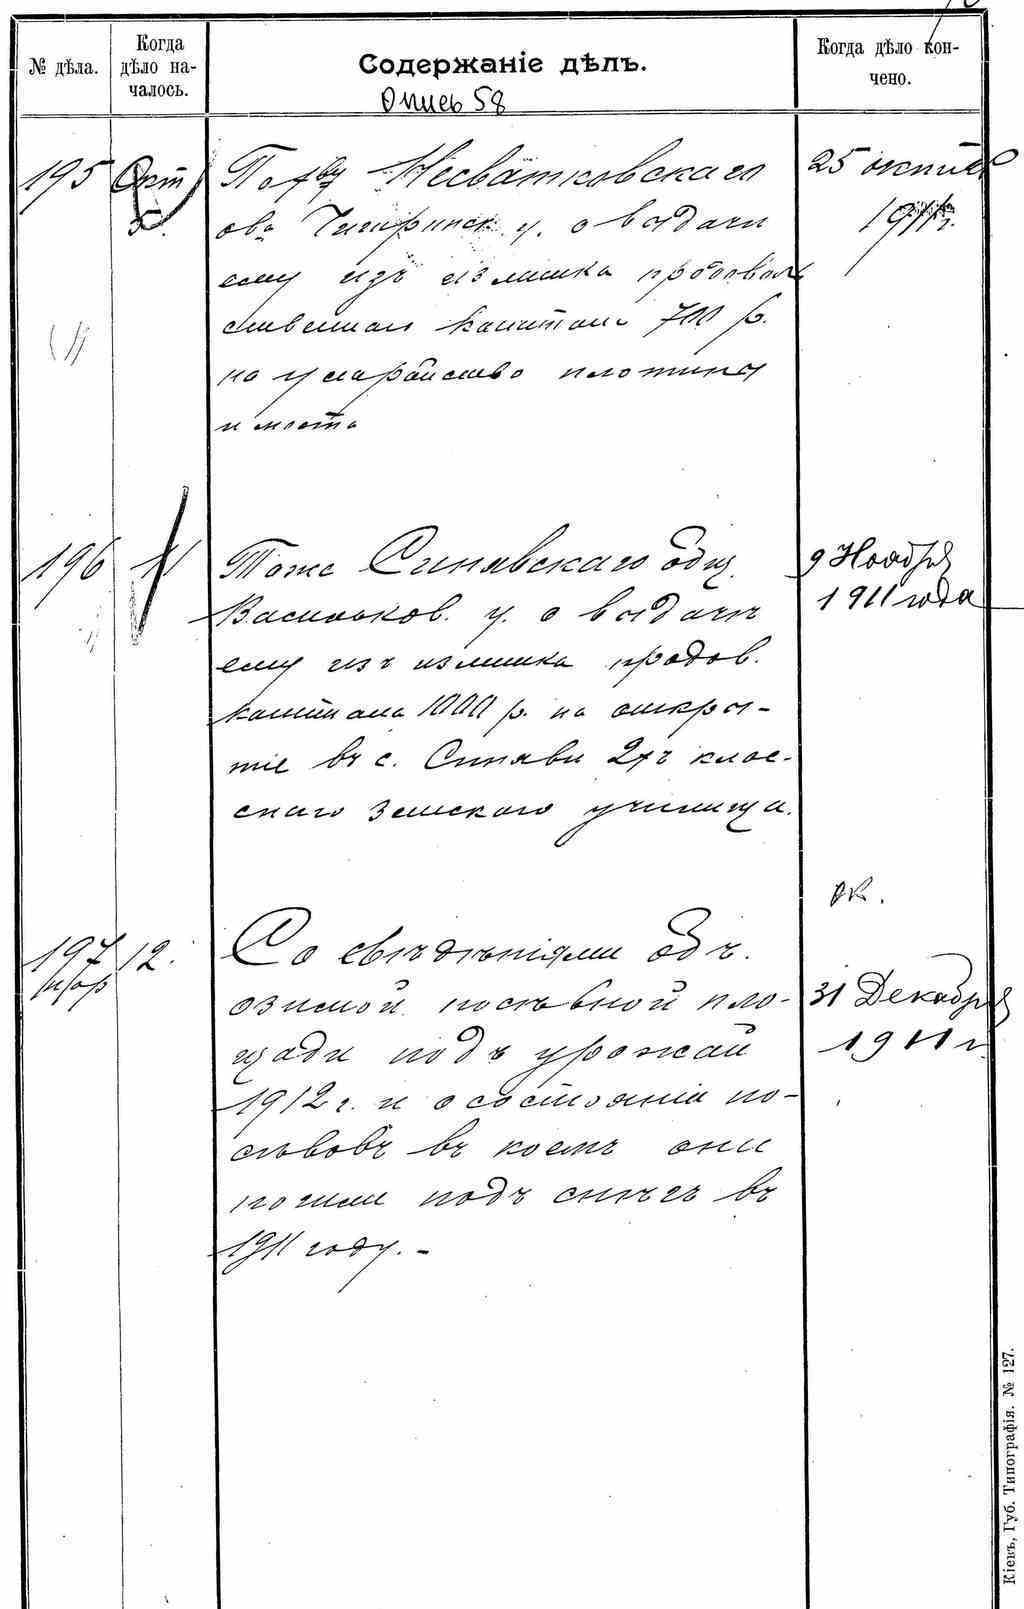 № дѣла.
Когда
дѣло на-
чалось.
Содержаніе дѣлъ.
Когда дѣло кон-
чено.
Опись 58
195
Окт
5.
По Несватковскаго
ова Чигиринск. у. о выдачи
ему изъ излишка продоволь
ственнаго капитала 700 р.
на устройство плотины
и моста
25 октяб
1911 г.
196
11
Тоже Синявскаго общ.
Васильков. у. о выдачи
ему изъ излишка продов.
капитала 1000 р. на откры-
тіе въ с. Синяви 2хъ клас-
снаго земскаго училища.
9 Ноября
1911 года
197
12.
Со свѣдѣніями объ.
озимой посѣвной пло-
щади подъ урожай
1912 г. и о состояніи по-
сѣвовъ въ коемъ они
пошли подъ снѣгъ въ
1911 году. -
31 Декабря
1911 г.
Кіевъ, Губ. Типографія. № 127.